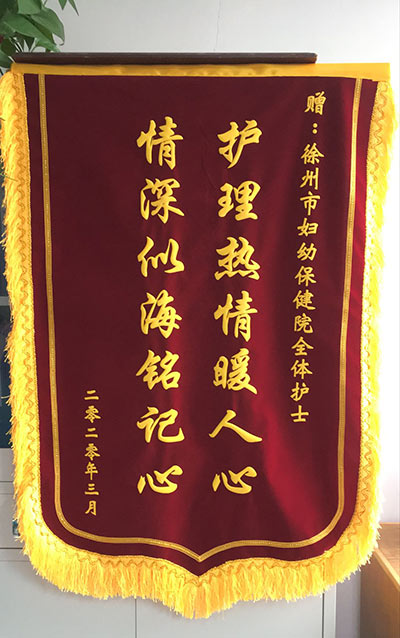 赠：徐州市妇幼保健院全体护士
护理热情暖人心
情深似海铭记心
二零二零年三月